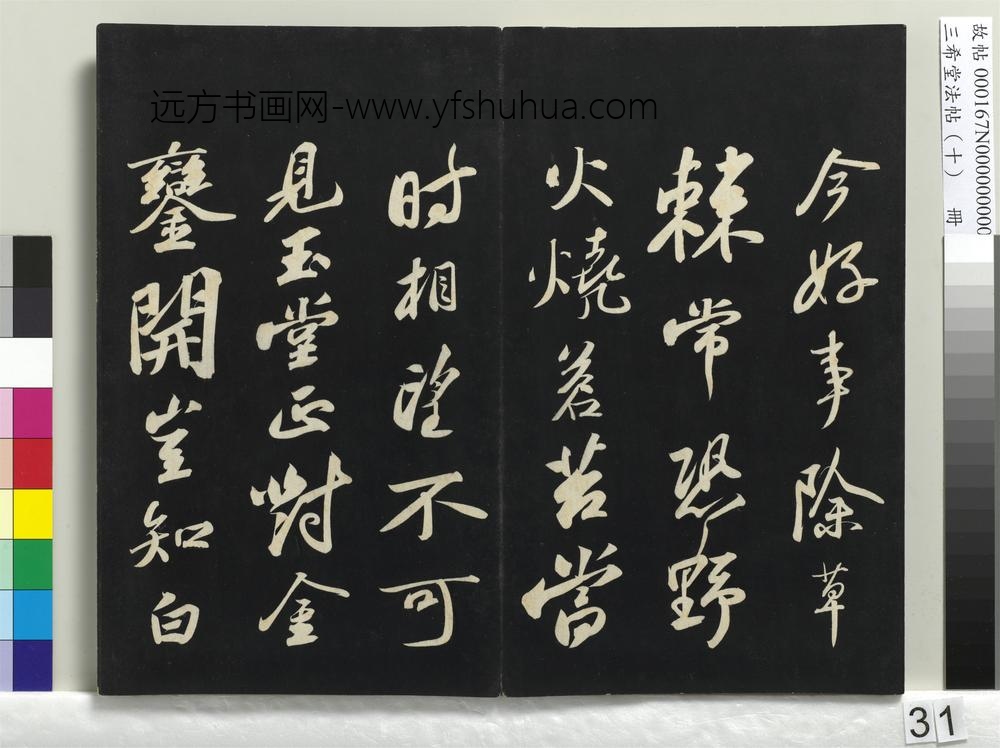 远方书画网-www.yfshuhua.com
今好事除草
棘常恐野
火燒蒼苔當
時相望不可
見玉堂正對金
鑾開豈知白
故帖 000167N000000000
三希堂法帖(十) 冊
31